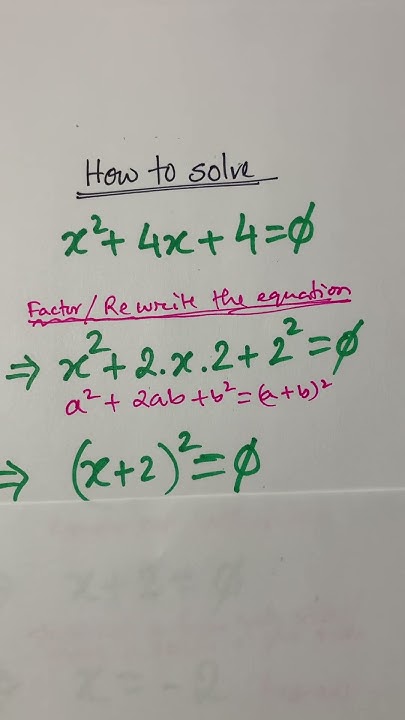 How to solve
x²+ 4x + 4 = ∅
Factor / Rewrite the equation
⇒ x² + 2.x.2 + 2² = ∅
a² + 2ab + b² = (a+b)²
⇒ (x+2)² = ∅
x + 2 = ∅
x = -2